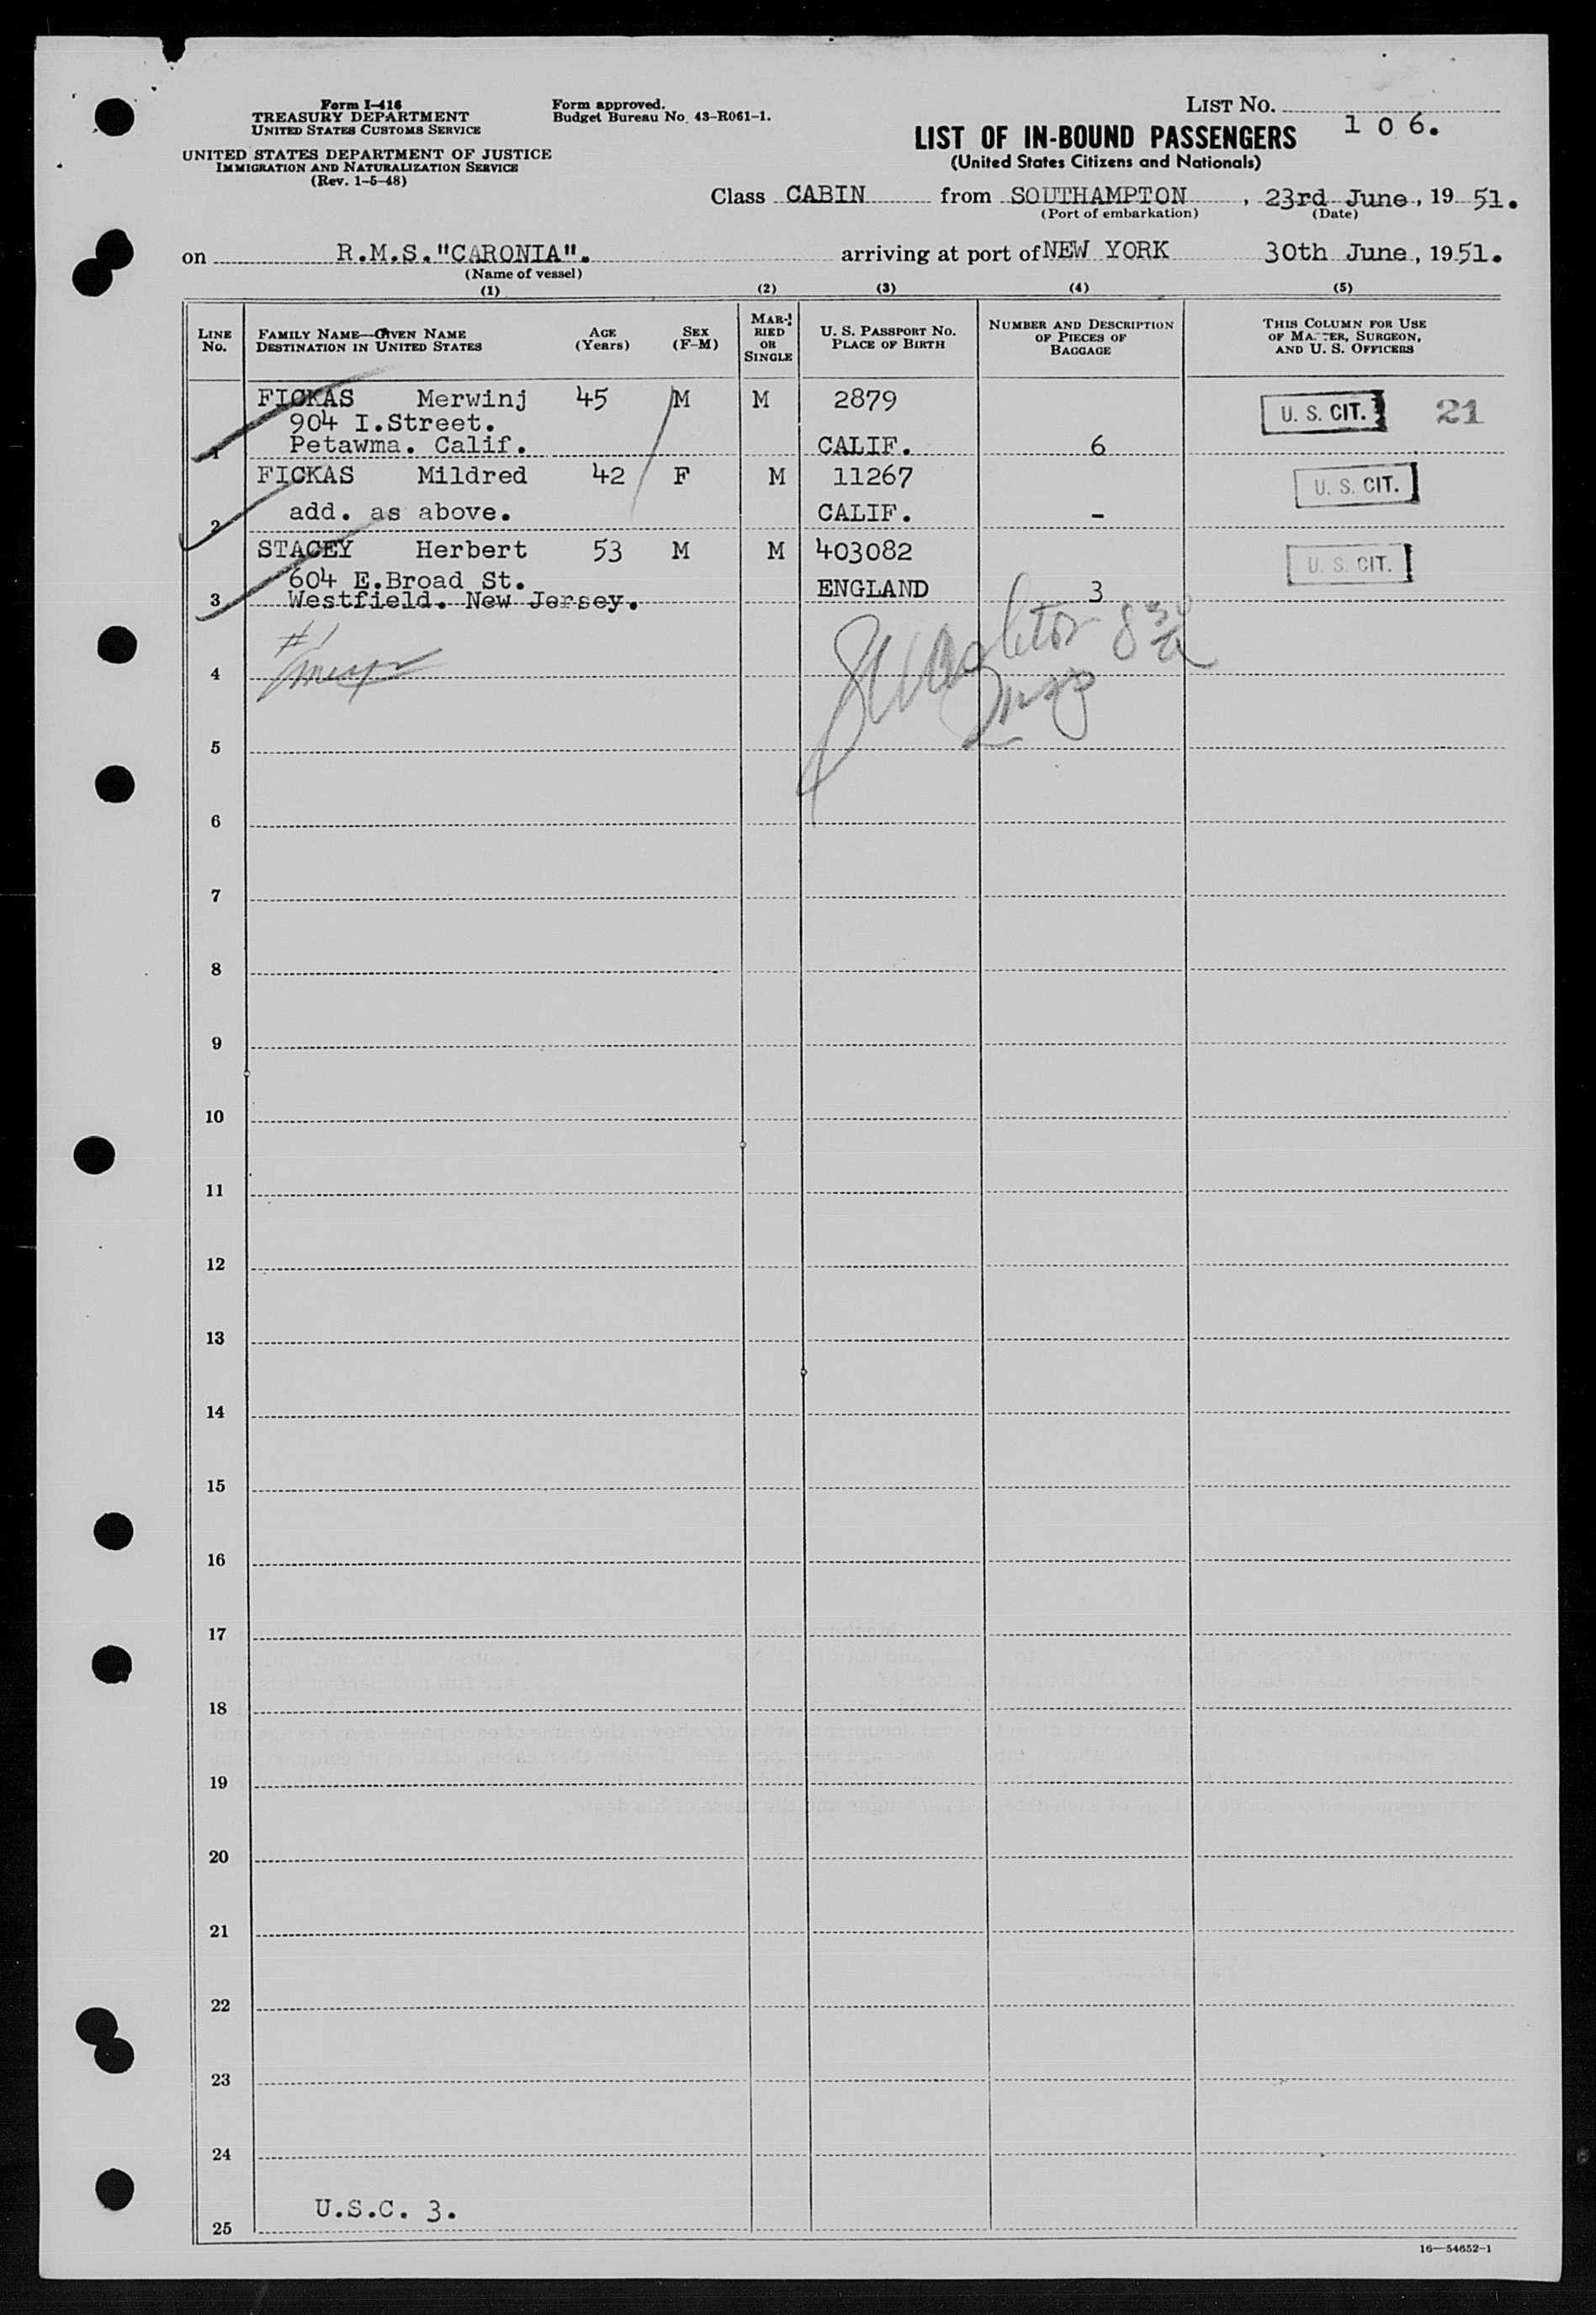 Form I-416
TREASURY DEPARTMENT
UNITED STATES CUSTOMS SERVICE
UNITED STATES DEPARTMENT OF JUSTICE
IMMIGRATION AND NATURALIZATION SERVICE
(Rev. 1-5-48)
Form approved.
Budget Bureau No. 43-R061-1.
LIST NO.
106.
LIST OF IN-BOUND PASSENGERS
(United States Citizens and Nationals)
Class CABIN from SOUTHAMPTON, 23rd June, 19 51.
(Port of embarkation) (Date)
on R.M.S."CARONIA". arriving at port of NEW YORK 30th June, 1951.
(Name of vessel)
(1) (2) (3) (4) (5)
LINE NO. FAMILY NAME—GIVEN NAME DESTINATION IN UNITED STATES AGE (Years) SEX (F-M) MARRIED OR SINGLE U. S. PASSPORT NO. PLACE OF BIRTH NUMBER AND DESCRIPTION OF PIECES OF BAGGAGE THIS COLUMN FOR USE OF MASTER, SURGEON, AND U. S. OFFICERS
FICKAS Merwinj 45 M M 2879 U. S. CIT. 21
904 I.Street.
1 Petawma. Calif. CALIF. 6
FICKAS Mildred 42 F M 11267 U. S. CIT.
2 add. as above. CALIF. -
STACEY Herbert 53 M M 403082 U. S. CIT.
604 E.Broad St. ENGLAND 3
3 Westfield. New Jersey.
#1
4
5
6
7
8
9
10
11
12
13
14
15
16
17
18
19
20
21
22
23
24
U.S.C. 3.
25
16—54652-1